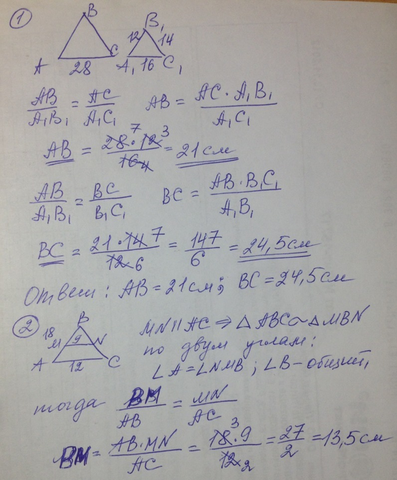 1
B B₁
12 14
A 28 C A₁ 16 C₁
AB/A₁B₁ = AC/A₁C₁ AB = AC · A₁B₁/A₁C₁
AB = 28 7 · 12 3/16 4 = 21 см
AB/A₁B₁ = BC/B₁C₁ BC = AB · B₁C₁/A₁B₁
BC = 21 · 14 7/12 6 = 147/6 = 24,5 см
Ответ: AB = 21 см; BC = 24,5 см
2
B
18 M 9 N
A 12 C
MN || AC ⇒ △ABC ~ △MBN
по двум углам:
∠A = ∠NMB; ∠B - общий,
тогда BM/AB = MN/AC
BM = AB · MN/AC = 18 3 · 9/12 2 = 27/2 = 13,5 см